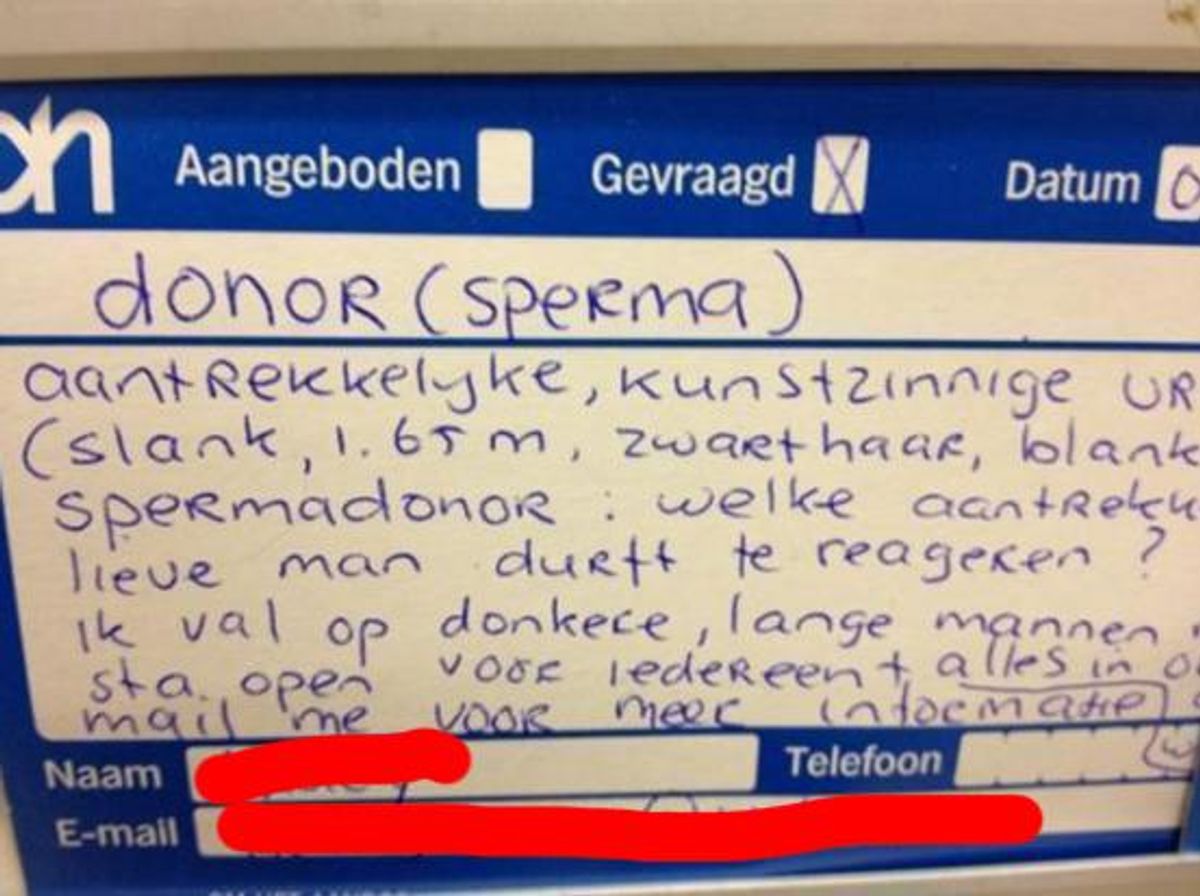 ah Aangeboden Gevraagd X Datum 0
donor (sperma)
aantrekkelyke, kunstzinnige UR
(slank, 1.65 m, zwart haar, blank
spermadonor : welke aantrekk
lieve man durft te reageren ?
ik val op donkere, lange mannen
sta open voor iedereen + alles in o
mail me voor meer informatie
Naam Telefoon
E-mail